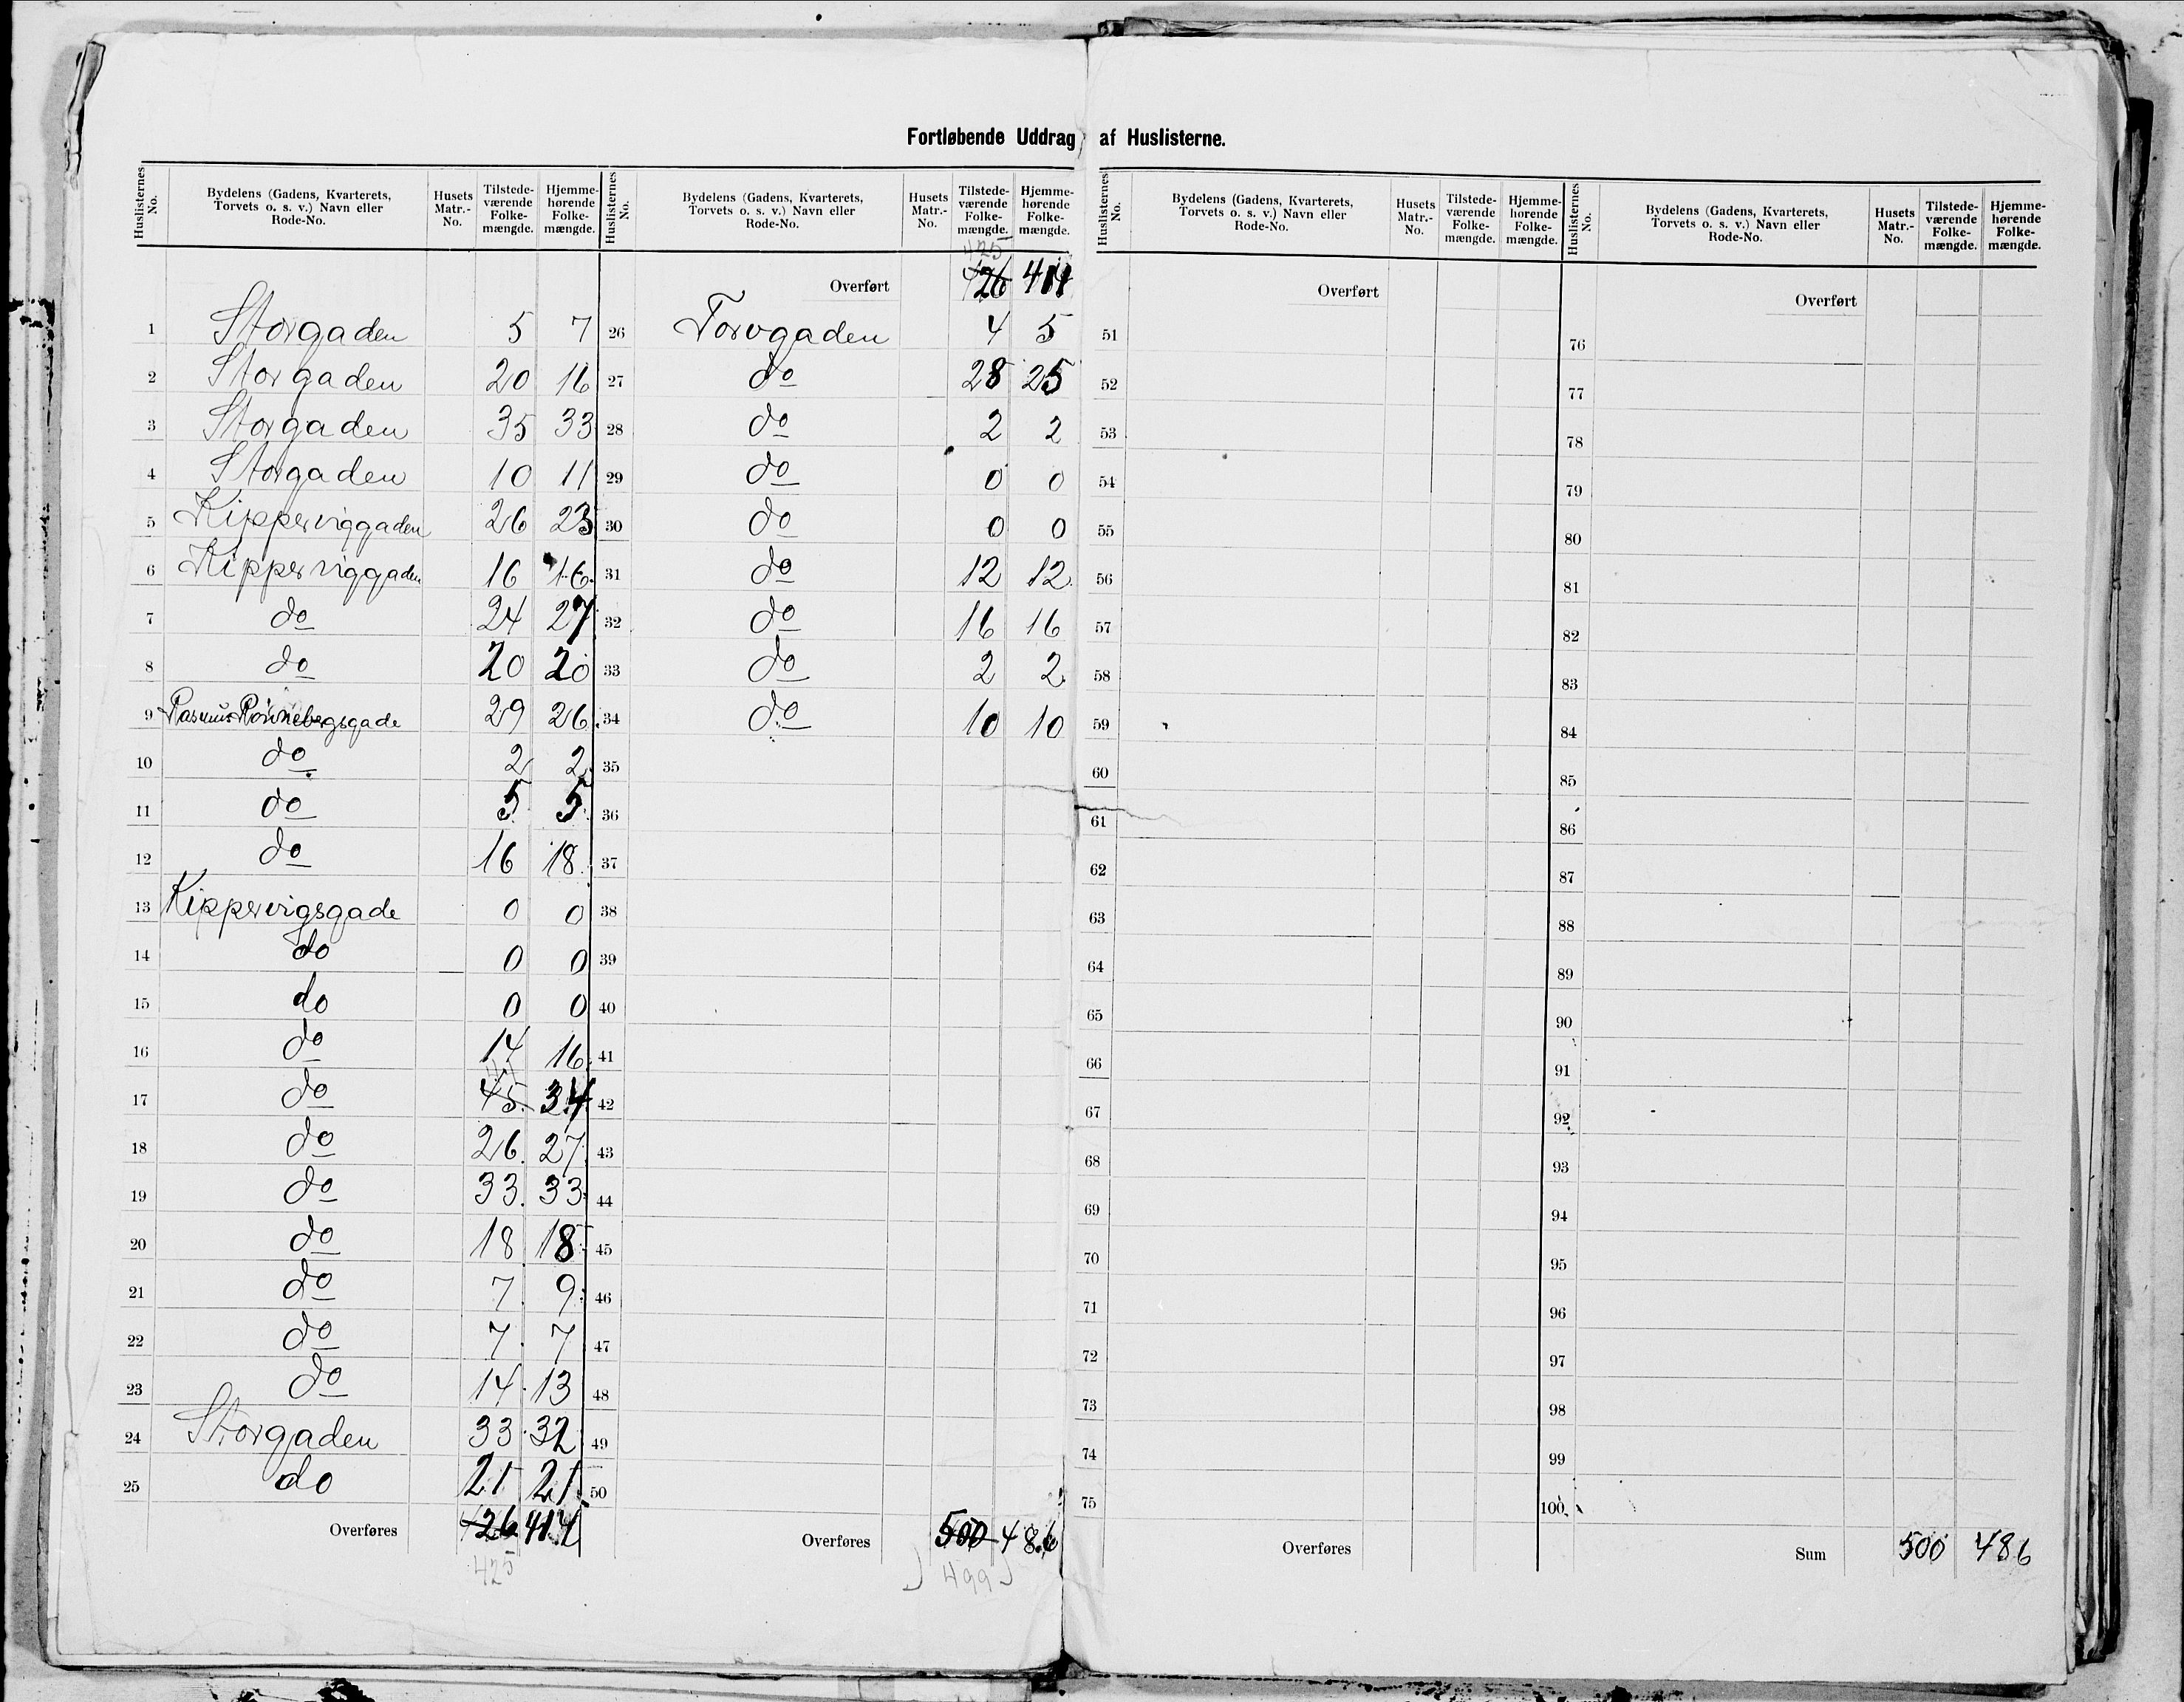 Fortløbende Uddrag af Huslisterne.
Huslisternes No. Bydelens (Gadens, Kvarterets, Torvets o. s. v.) Navn eller Rode-No. Husets Matr.-No. Tilstede-værende Folke-mængde. Hjemme-hørende Folke-mængde.
1 Storgaden 5 7
2 Storgaden 20 16
3 Storgaden 35 33
4 Storgaden 10 11
5 Kipperviggaden 26 23
6 Kipperviggaden 16 16
7 do 24 27
8 do 20 20
9 Rasmus Rønnebergsgade 29 26
10 do 2 2
11 do 5 5
12 do 16 18
13 Kippervigsgade 0 0
14 do 0 0
15 do 0 0
16 do 14 16
17 do 45 34
18 do 26 27
19 do 33 33
20 do 18 18
21 do 7 9
22 do 7 7
23 do 14 13
24 Storgaden 33 32
25 do 21 21
Overføres 426 414
425
Huslisternes No. Bydelens (Gadens, Kvarterets, Torvets o. s. v.) Navn eller Rode-No. Husets Matr.-No. Tilstede-værende Folke-mængde. Hjemme-hørende Folke-mængde.
425
Overført 426 414
26 Torvgaden 4 5
27 do 28 25
28 do 2 2
29 do 0 0
30 do 0 0
31 do 12 12
32 do 16 16
33 do 2 2
34 do 10 10
35
36
37
38
39
40
41
42
43
44
45
46
47
48
49
50
Overføres 500 486
499
Huslisternes No. Bydelens (Gadens, Kvarterets, Torvets o. s. v.) Navn eller Rode-No. Husets Matr.-No. Tilstede-værende Folke-mængde. Hjemme-hørende Folke-mængde.
Overført
51
52
53
54
55
56
57
58
59
60
61
62
63
64
65
66
67
68
69
70
71
72
73
74
75
Overføres
Huslisternes No. Bydelens (Gadens, Kvarterets, Torvets o. s. v.) Navn eller Rode-No. Husets Matr.-No. Tilstede-værende Folke-mængde. Hjemme-hørende Folke-mængde.
Overført
76
77
78
79
80
81
82
83
84
85
86
87
88
89
90
91
92
93
94
95
96
97
98
99
100
Sum 500 486